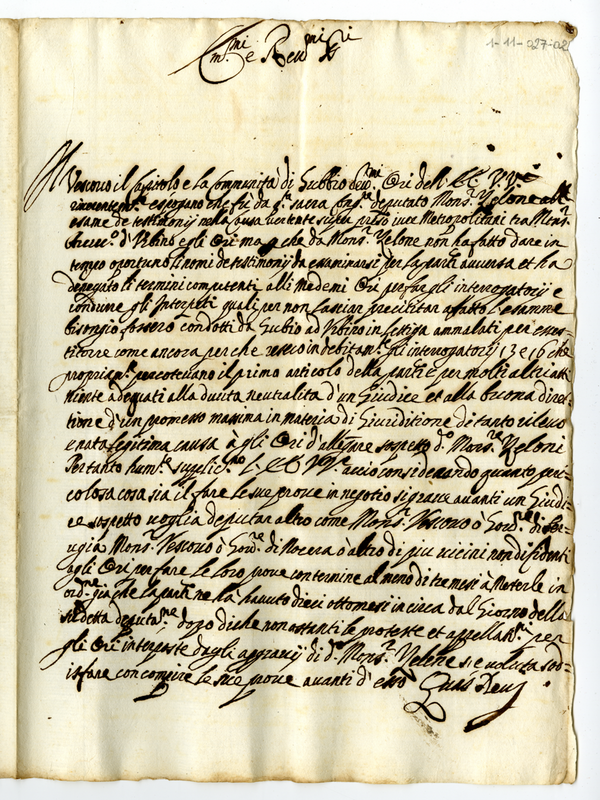 1-11-027-02
Em.mi e Rev.mi S.ri
Il Vescovo il Capitolo e la Communità di Gubbio dev.mi Ori dell' EE. VV.
espongano che fu da q.ta sacra Cog.ne deputato Mons.r Velone all
esame de testimonij nella causa vertente super iure Metropolitani tra Mons.r
Arciv.o d'Urbino e gli Ori ma p che da Mons.r Velone non ha fatto dare in
tempo oportuno li nomi de testimonij da esaminarsi per la parte avversa et ha
denegato li termini competenti alli medemi Ori per far gli interrogatorij e
condurre gli Interpeti quali per non lasciar precipitar affatto l'esamme
bisognio fossero condotti da Gubio ad Urbino in letiga ammalati per
come ancora per che indebitam.te gli interrogatorij 13 e 16 che
propriam.te percotevano il primo articolo della parte e per molti altri atti
niente adequati alla dovuta neutralita d'un Giudice et alla buona diret-
tione d'un processo massima in materia di Giuriditione di tanto rilevo
e nata legitima causa à gli Ori d'allegare sospetto d.o Mons.re Veloni
Per tanto hum.te suplic.no l' EE VV. acciò considerando quanto peri-
colosa cosa sia il fare le sue prove in negotio si grave avanti un Giudi-
ce sospetto voglia deputar altro come Mons.r Vescovo ò Gov.re di Per-
ugia Mons.r Vescovo ò Gov.re di Nocera ò altro di piu vicini non difidenti
agli Ori per fare le loro prove con termine al meno di tre mesi à Meterle in
ord.ne gia che la parte ne hà havuto dieci otto mesi in circa dal Giorno della
sudetta deputa.ne dopo di che non ostanti le proteste et appellat.ni per
gli Ori interposte dagli aggravij di d.o Mons.r Velone si e voluta sod-
isfare con compire le sue prove avanti d'esso Quas Deus